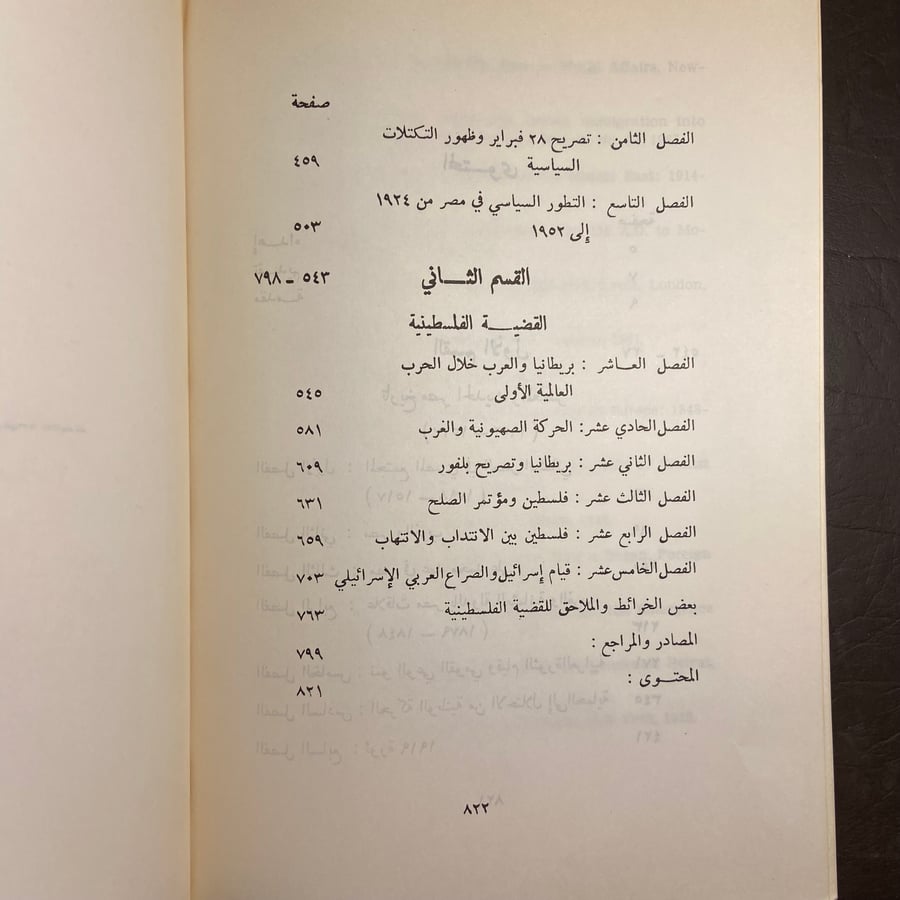 صفحة
الفصل الثامن : تصريح ٢٨ فبراير وظهور التكتلات
السياسية ٤٥٩
الفصل التاسع : التطور السياسي في مصر من ١٩٢٤
إلى ١٩٥٢ ٥٠٣
القسم الثـــاني ٥٤٣ ــ ٧٩٨
القضيـــة الفلسطينية
الفصل العـاشر : بريطانيا والعرب خلال الحرب
العالمية الأولى ٥٤٥
الفصل الحادي عشر: الحركة الصهيونية والغرب ٥٨١
الفصل الثاني عشر : بريطانيا وتصريح بلفور ٦٠٩
الفصل الثالث عشر : فلسطين ومؤتمر الصلح ٦٣١
الفصل الرابع عشر : فلسطين بين الانتداب والانتهاب ٦٥٩
الفصل الخامس عشر : قيام إسرائيل والصراع العربي الإسرائيلي ٧٠٣
بعض الخرائط والملاحق للقضية الفلسطينية ٧٦٣
المصادر والمراجع : ٧٩٩
المحتوـــى : ٨٢١
٨٢٢